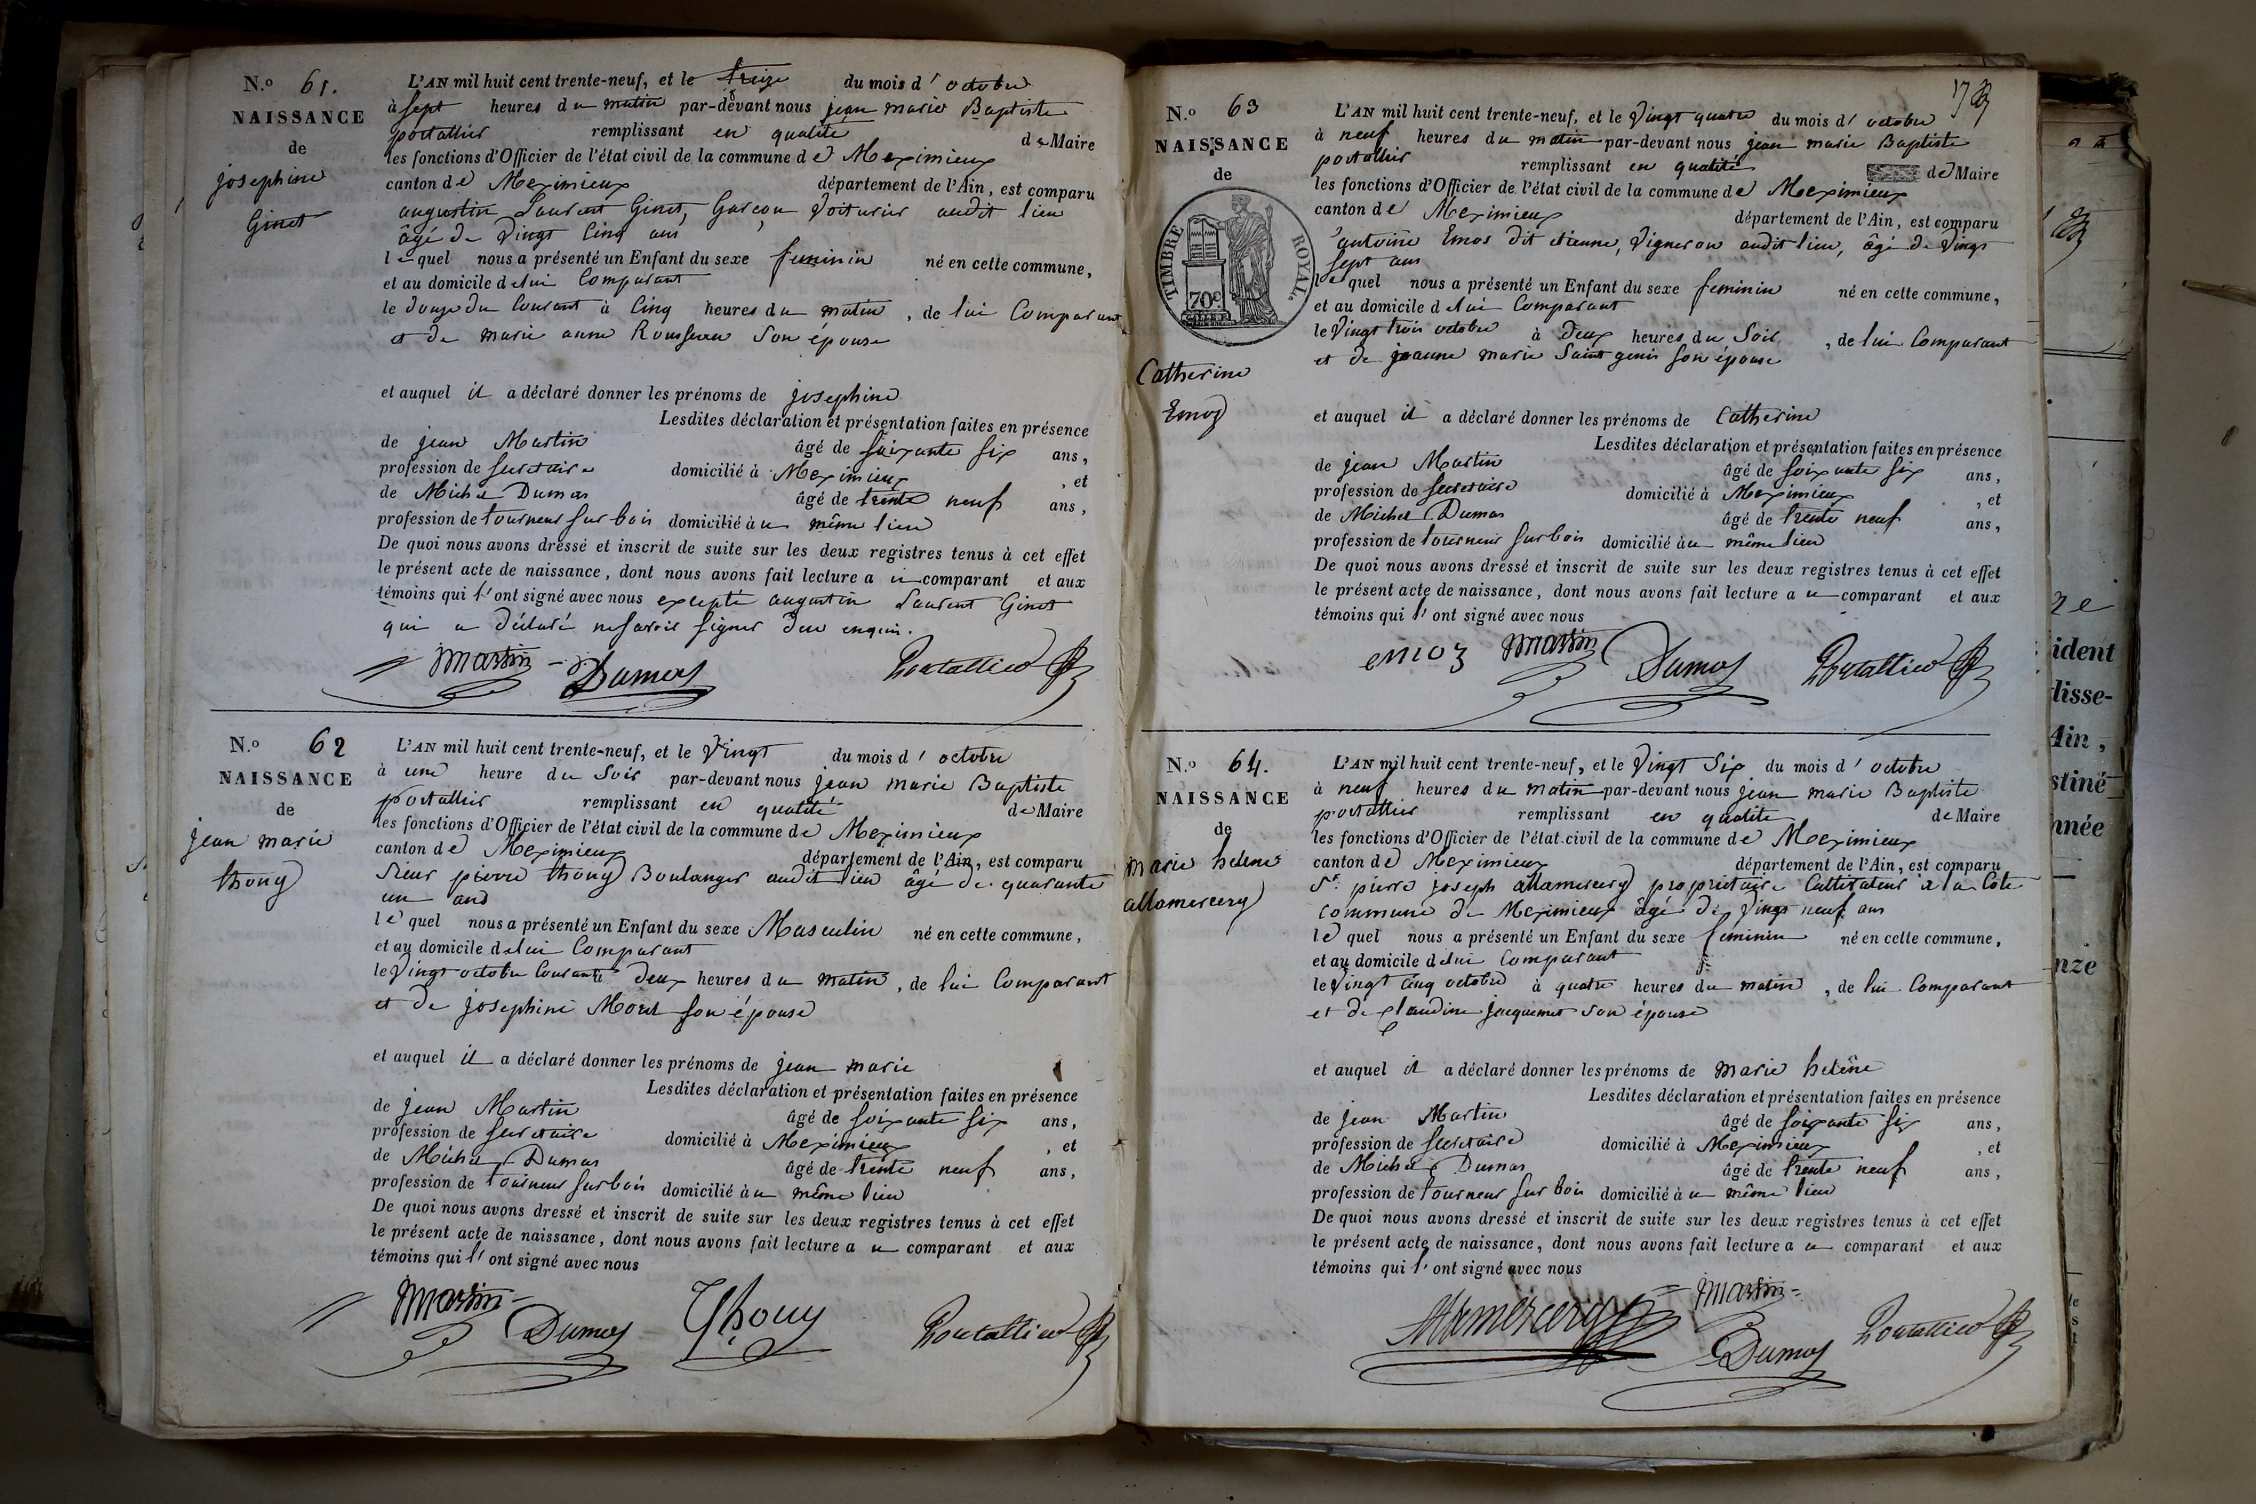 N.o 61.
NAISSANCE
de
josephine
Ginet
L'AN mil huit cent trente-neuf, et le treize du mois d' octobre
à sept heures du matin par-devant nous jean marie Baptiste
portallier remplissant en qualité de Maire
les fonctions d'Officier de l'état civil de la commune de Meximieux
canton de Meximieux département de l'Ain, est comparu
augustin Laurent Ginet, Garçon Voiturier audit lieu
âgé de vingt cinq ans
lequel nous a présenté un Enfant du sexe feminin né en cette commune,
et au domicile de lui Comparant
le douze du Courant à Cinq heures du matin, de lui Comparant
et de marie anne Rousseau Son épouse
et auquel il a déclaré donner les prénoms de josephine
Lesdites déclaration et présentation faites en présence
de jean Martin âgé de soixante six ans,
profession de secretaire domicilié à Meximieux, et
de Michel Dumas âgé de trente neuf ans,
profession de tourneur sur bois domicilié à u même lieu
De quoi nous avons dressé et inscrit de suite sur les deux registres tenus à cet effet
le présent acte de naissance, dont nous avons fait lecture a u comparant et aux
témoins qui l' ont signé avec nous excepté augustin Laurent Ginet
qui a déclaré ne savoir signer de ce enquis.
Martin Dumas Portallier
N.o 62
NAISSANCE
de
jean marie
thouy
L'AN mil huit cent trente-neuf, et le Vingt du mois d' octobre
à une heure du Soir par-devant nous jean marie Baptiste
portallier remplissant en qualité de Maire
les fonctions d'Officier de l'état civil de la commune de Meximieux
canton de Meximieux département de l'Ain, est comparu
Sieur pierre thouy Boulanger audit lieu âgé de quarante
un ans
lequel nous a présenté un Enfant du sexe Masculin né en cette commune,
et au domicile de lui Comparant
le Vingt octobre Courant à deux heures du matin, de lui Comparant
et de josephine Morel son épouse
et auquel il a déclaré donner les prénoms de jean marie
Lesdites déclaration et présentation faites en présence
de jean Martin âgé de soixante six ans,
profession de secretaire domicilié à Meximieux, et
de Michel Dumas âgé de trente neuf ans,
profession de tourneur sur bois domicilié à u même lieu
De quoi nous avons dressé et inscrit de suite sur les deux registres tenus à cet effet
le présent acte de naissance, dont nous avons fait lecture a u comparant et aux
témoins qui l' ont signé avec nous
Martin Dumas Thouy Portallier
N.o 63
NAISSANCE
de
TIMBRE ROYAL.
70c
Catherine
Emoz
L'AN mil huit cent trente-neuf, et le Vingt quatre du mois d' octobre
à neuf heures du matin par-devant nous jean marie Baptiste
portallier remplissant en qualité de Maire
les fonctions d'Officier de l'état civil de la commune de Meximieux
canton de Meximieux département de l'Ain, est comparu
antoine Emos dit etienne, Vigneron audit lieu, âgé de Vingt
sept ans
lequel nous a présenté un Enfant du sexe feminin né en cette commune,
et au domicile de lui Comparant
le Vingt trois octobre à deux heures du Soir, de lui Comparant
et de jeanne marie Saint genis son épouse
et auquel il a déclaré donner les prénoms de Catherine
Lesdites déclaration et présentation faites en présence
de jean Martin âgé de soixante six ans,
profession de secretaire domicilié à Meximieux, et
de Michel Dumas âgé de trente neuf ans,
profession de tourneur sur bois domicilié à u même lieu
De quoi nous avons dressé et inscrit de suite sur les deux registres tenus à cet effet
le présent acte de naissance, dont nous avons fait lecture a u comparant et aux
témoins qui l' ont signé avec nous
emoz Martin Dumas Portallier
N.o 64.
NAISSANCE
de
marie helene
allamercery
L'AN mil huit cent trente-neuf, et le Vingt Six du mois d' octobre
à neuf heures du matin par-devant nous jean marie Baptiste
portallier remplissant en qualité de Maire
les fonctions d'Officier de l'état civil de la commune de Meximieux
canton de Meximieux département de l'Ain, est comparu
Sr. pierre joseph allamercery propriétaire Cultivateur à la Côte
commune de Meximieux âgé de Vingt neuf ans
lequel nous a présenté un Enfant du sexe feminin né en cette commune,
et au domicile de lui Comparant
le Vingt cinq octobre à quatre heures du matin, de lui Comparant
et de Claudine jacquemet son épouse
et auquel il a déclaré donner les prénoms de marie helène
Lesdites déclaration et présentation faites en présence
de jean Martin âgé de soixante six ans,
profession de secretaire domicilié à Meximieux, et
de Michel Dumas âgé de trente neuf ans,
profession de tourneur sur bois domicilié à u même lieu
De quoi nous avons dressé et inscrit de suite sur les deux registres tenus à cet effet
le présent acte de naissance, dont nous avons fait lecture a u comparant et aux
témoins qui l' ont signé avec nous
Allamercery Martin Dumas Portallier
ident
lisse-
Ain,
stiné
nnée
nze